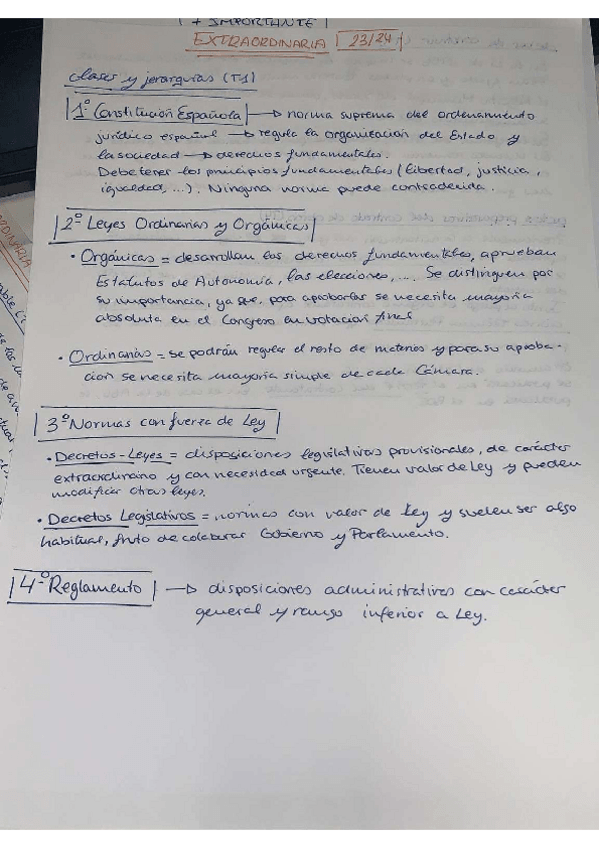 + IMPORTANTE
EXTRAORDINARIA 23/24
clases y jerarquías (T1)
1º Constitución Española → norma suprema del ordenamiento
jurídico español → regula la organización del Estado y
la sociedad → derechos fundamentales.
Debe tener los principios fundamentales (libertad, justicia,
igualdad, ...). Ninguna norma puede contradecirla.
2º Leyes Ordinarias y Orgánicas
• Orgánicas = desarrollan los derechos fundamentales, aprueban
Estatutos de Autonomía, las elecciones, ... Se distinguen por
su importancia, ya que, para aprobarlas se necesita mayoría
absoluta en el Congreso en votación final
• Ordinarias = se podrán regular el resto de materias y para su aproba-
ción se necesita mayoría simple de cada Cámara.
3º Normas con fuerza de Ley
• Decretos-Leyes = disposiciones legislativas provisionales, de carácter
extraordinario y con necesidad urgente. Tienen valor de Ley y pueden
modificar otras leyes.
• Decretos Legislativos = normas con valor de Ley y suelen ser algo
habitual, fruto de colaborar Gobierno y Parlamento.
4º Reglamento → disposiciones administrativas con carácter
general y rango inferior a Ley.